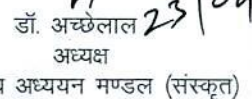 डॉ. अच्छेलाल 23/0
अध्यक्ष
अध्ययन मण्डल (संस्कृत)